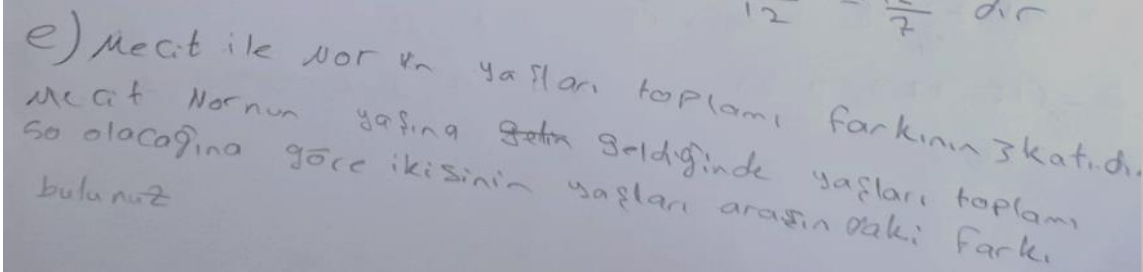 12 - 12/7 dir
e) Mecit ile Nor un yaşları toplamı farkının 3 katıdı.
Mecit Nornun yaşına geldiğinde yaşları toplamı
50 olacağına göre ikisinin yaşları arasın daki farkı
bulunuz